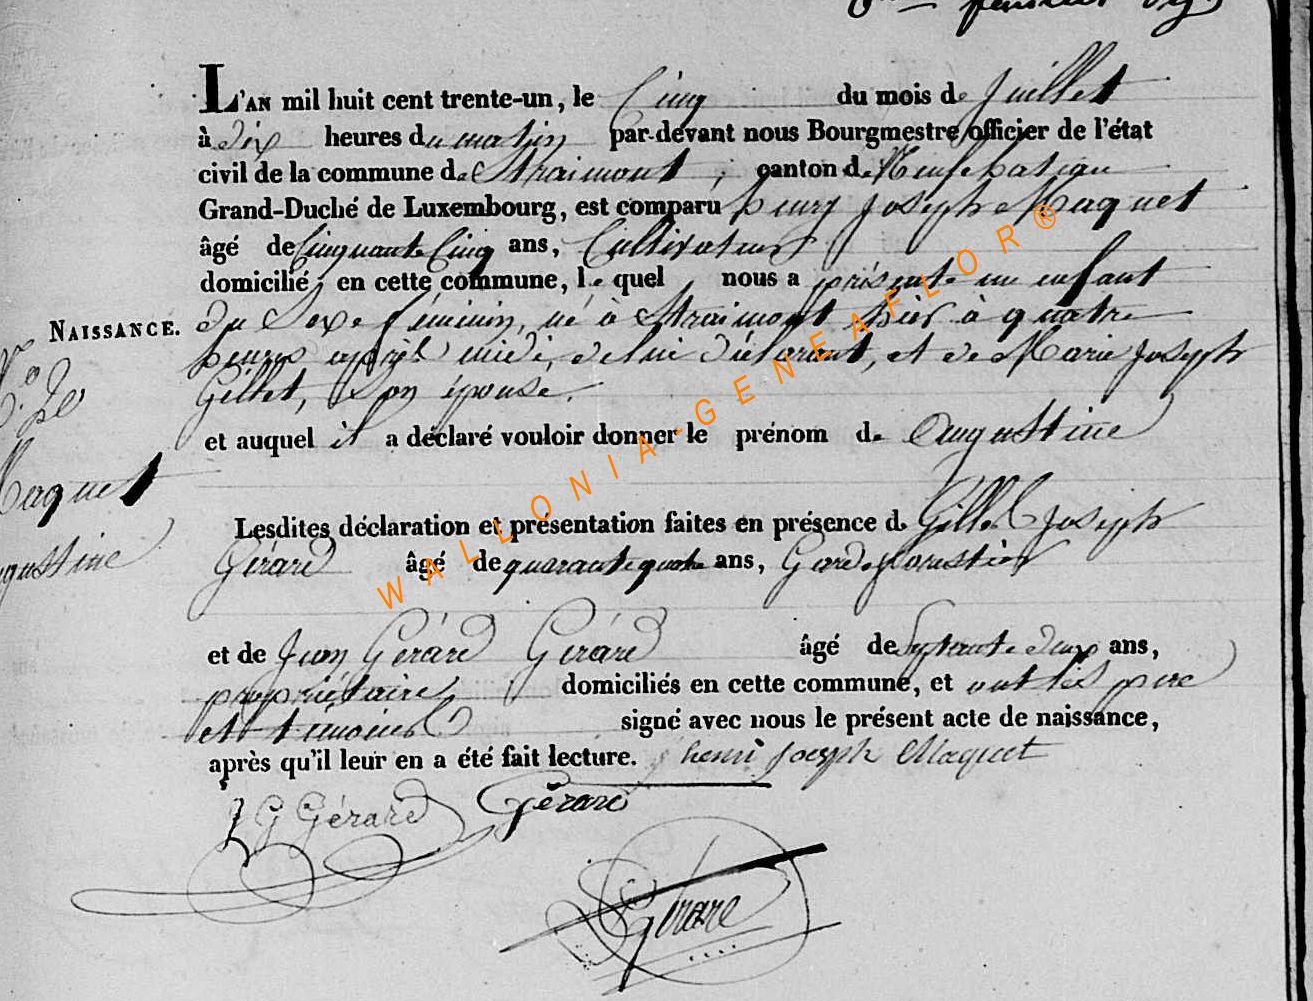 février
L'AN mil huit cent trente-un, le Cinq du mois de Juillet
à dix heures du matin par-devant nous Bourgmestre officier de l'état
civil de la commune de Straimont, canton de Neufchateau
Grand-Duché de Luxembourg, est comparu henry Joseph Maquet
âgé de Cinquante Cinq ans, Cultivateur
domicilié en cette commune, le quel nous a présenté un enfant
NAISSANCE. du Sexe féminin, né à Straimont hier à quatre
heures après midi, de lui déclarant, et de Marie Joseph
Gillet, Son épouse.
et auquel il a déclaré vouloir donner le prénom de Augustine
Maquet
Augustine
Lesdites déclaration et présentation faites en présence de Gilles Joseph
Gérard âgé de quarante quatre ans, Garde forestier
et de Jean Gérard Gérard âgé de Septante deux ans,
propriétaire domiciliés en cette commune, et ont les père
et témoins signé avec nous le présent acte de naissance,
après qu'il leur en a été fait lecture. henri joseph Maquet
J G Gérard Gérard
Gérard
WALLONIA-GENEAFLOR®